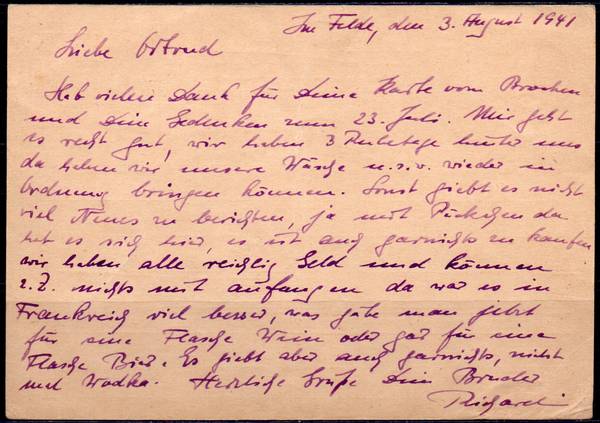 Im Felde, den 3. August 1941
Liebe Ortrud
Hab vielen Dank für Deine Karte vom Brocken
und Dein Gedenken zum 23. Juli. Mir geht
es recht gut, wir haben 3 Ruhetage hinter uns
da haben wir unsere Wäsche u.s.w. wieder in
Ordnung bringen können. Sonst giebt es nicht
viel Neues zu berichten, ja mit Päckchen da
hat es sich hier, es ist auch garnichts zu kaufen
wir haben alle reichlig Geld und können
z.Z. nichts mit anfangen da war es in
Frankreich viel besser, was gäbe man jetzt
für eine Flasche Wein oder gar für eine
Flasche Bier. Es giebt aber auch garnichts, nicht
mal Wodka. Herzliche Grüße Dein Bruder
Richard